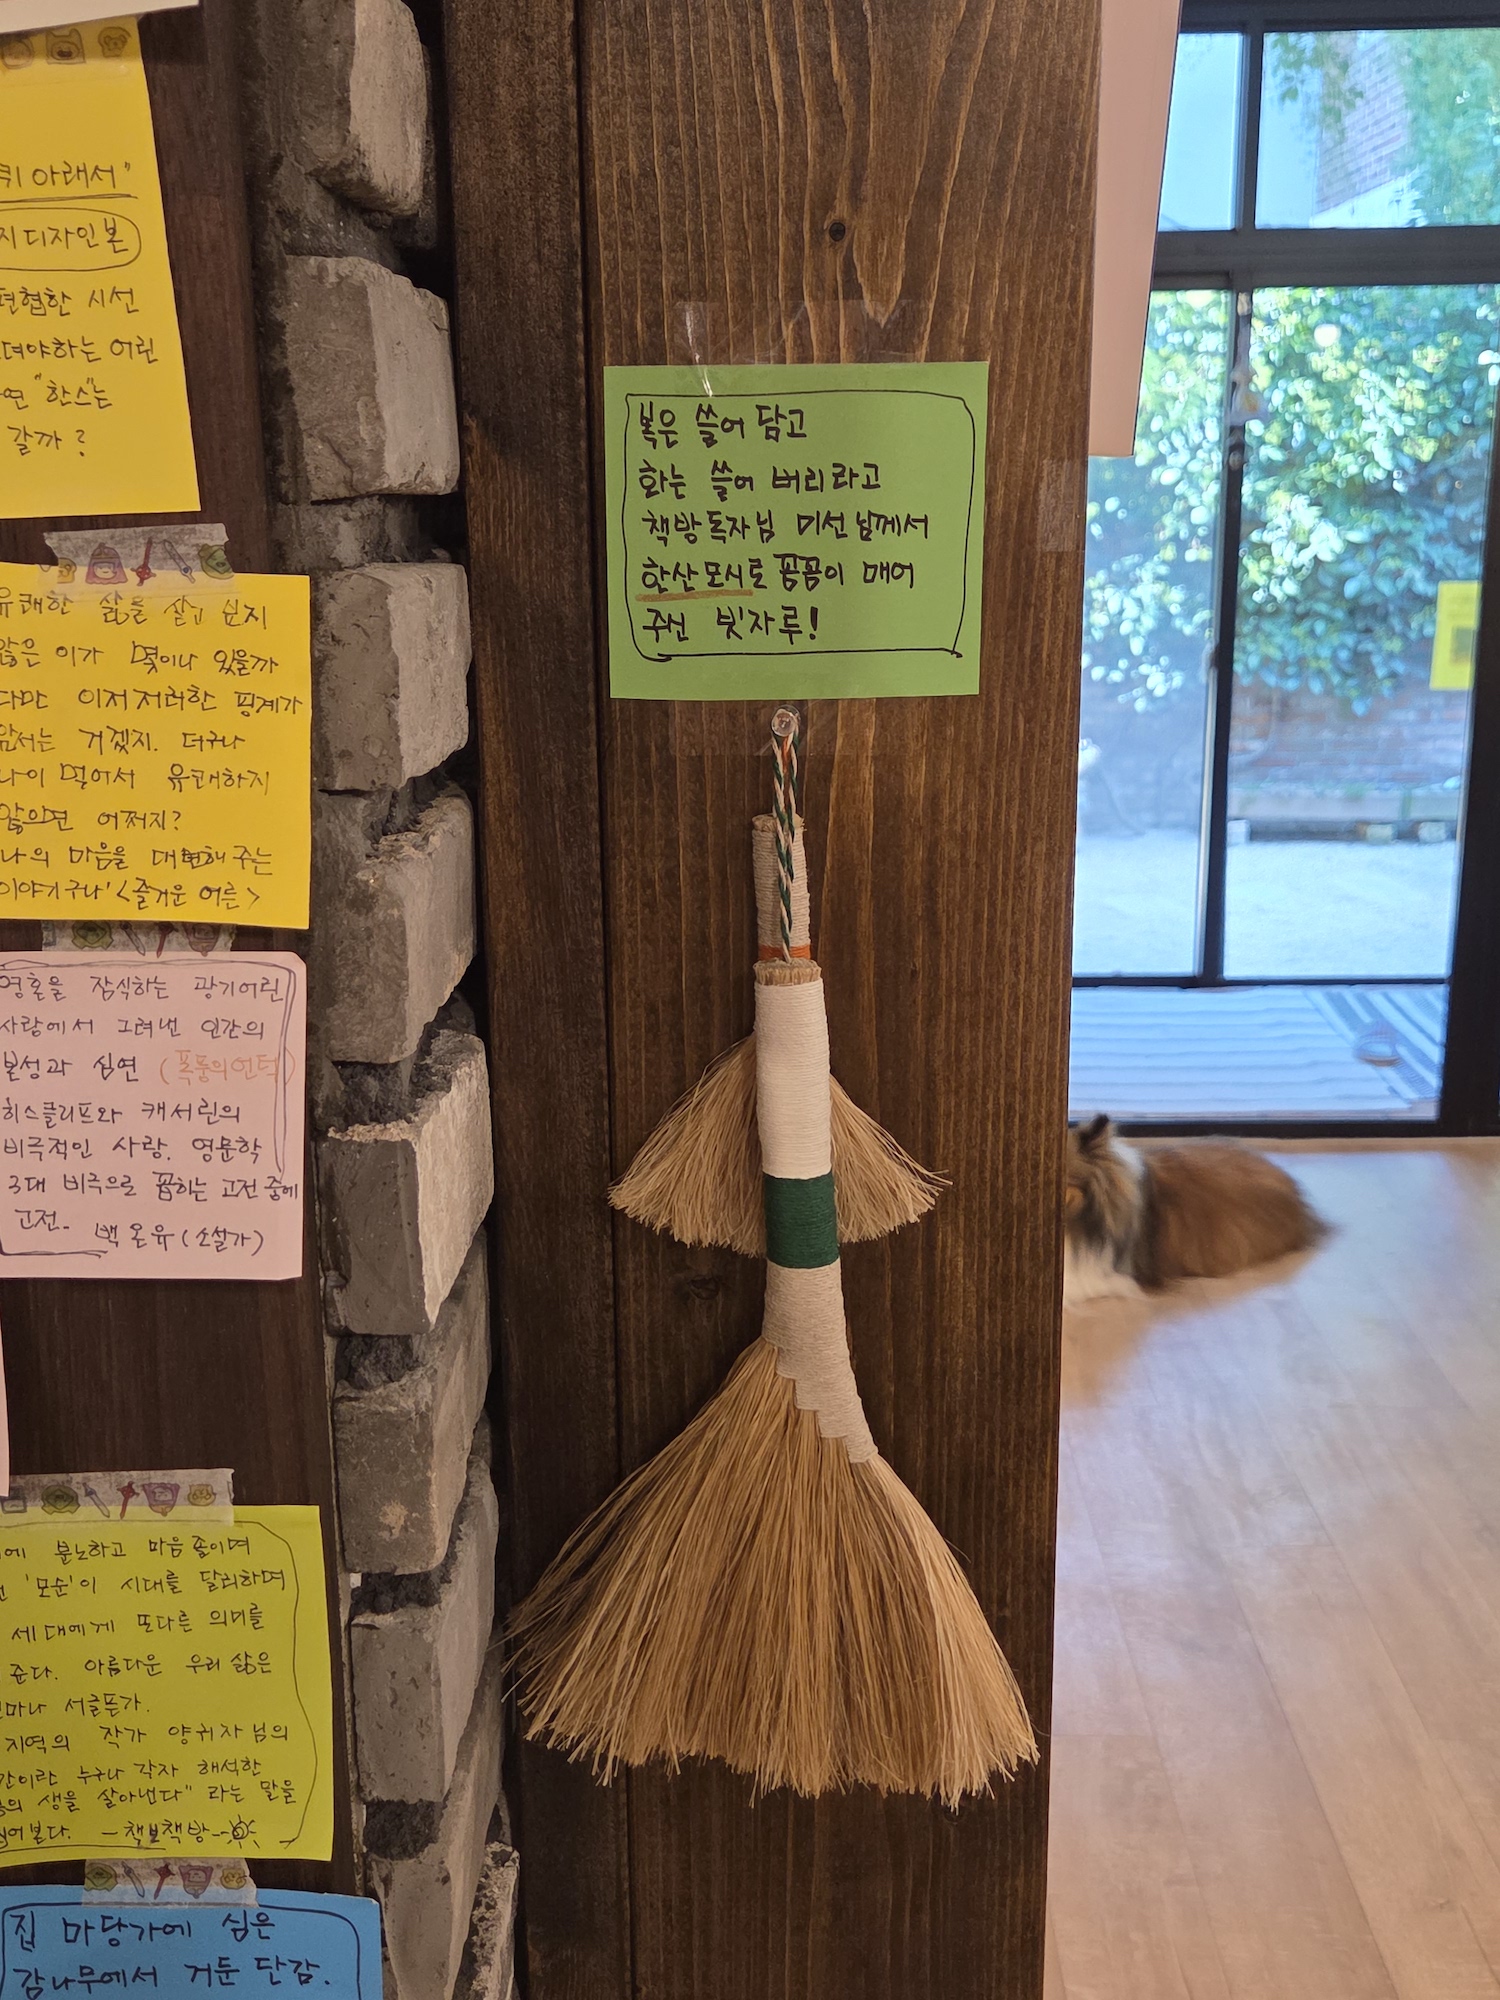 아래서"
디자인본
편협한 시선
하는 어린
"한스"는
갈까?
유쾌한 삶을 살고 싶지
않은 이가 몇이나 있을까
다만 이저저러한 핑계가
앞서는 거겠지. 더구나
나이 먹어서 유쾌하지
않으면 어쩌지?
나의 마음을 대변해 주는
이야기구나' <즐거운 어른>
영혼을 잠식하는 광기어린
사랑에서 그려낸 인간의
본성과 심연 (폭풍의언덕)
히스클리프와 캐서린의
비극적인 사랑. 영문학
3대 비극으로 꼽히는 고전 중에
고전.
백온유 (소설가)
분노하고 마음 졸이며
'모순'이 시대를 달리하며
세대에게 또다른 의미를
준다. 아름다운 우리 삶은
서글픈가.
지역의 작가 양귀자님의
누구나 각자 해석한
생을 살아낸다" 라는 말을
본다. -책보책방-
집 마당가에 심은
감나무에서 거둔 단감.
복은 쓸어 담고
화는 쓸어 버리라고
책방독자님 미선님께서
한산모시로 꼼꼼이 매어
주신 빗자루!